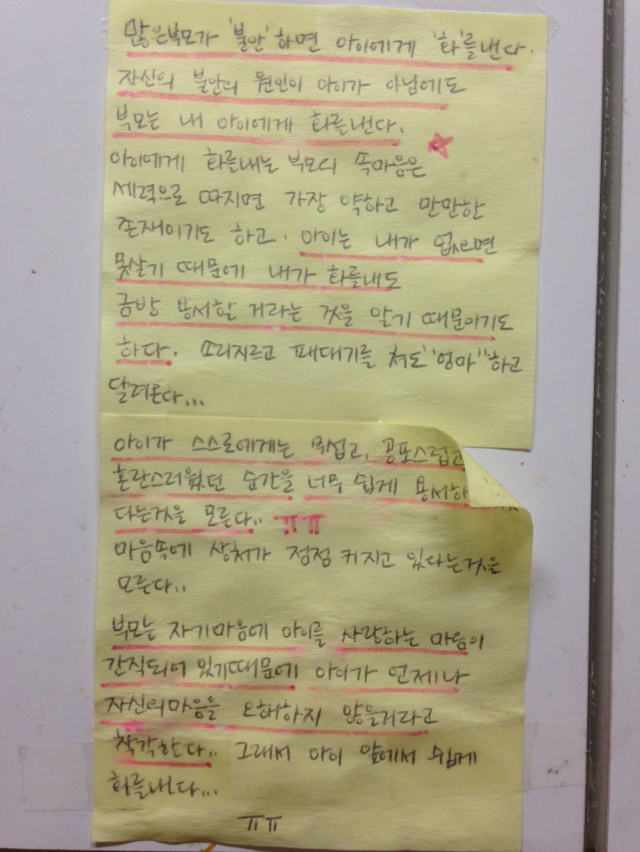 많은부모가 '불안'하면 아이에게 '화'를낸다.
자신의 불안의 원인이 아이가 아님에도
부모는 내 아이에게 화를낸다.
아이에게 화를내는 부모의 속마음은
세력으로 따지면 가장 약하고 만만한
존재이기도 하고. 아이는 내가 없으면
못살기 때문에 내가 화를내도
금방 용서할 거라는 것을 알기 때문이기도
하다. 소리지르고 패대기를 쳐도 "엄마"하고
달려온다...
아이가 스스로에게는 무섭고, 공포스럽고
혼란스러웠던 순간을 너무 쉽게 용서하
다는것을 모른다.. ㅠㅠ
마음속에 상처가 점점 커지고 있다는것은
모른다..
부모는 자기마음에 아이를 사랑하는 마음이
간직되어 있기때문에 아이가 언제나
자신의마음을 오해하지 않을거라고
착각한다.. 그래서 아이 앞에서 쉽게
화를낸다...
ㅠㅠ